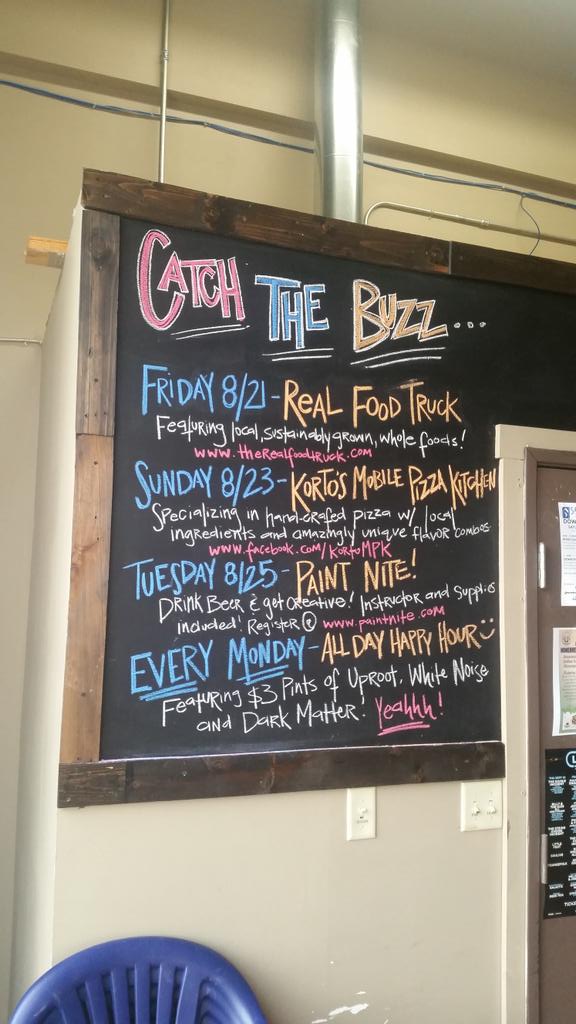 CATCH THE BUZZ...
FRIDAY 8/21 - REAL FOOD TRUCK
Featuring local, sustainably grown, whole foods!
www.therealfoodtruck.com
SUNDAY 8/23 - KORTO'S MOBILE PIZZA KITCHEN
Specializing in hand-crafed pizza w/ local
ingredients and amazingly unique flavor combos
www.facebook.com/kortoMPK
TUESDAY 8/25 - PAINT NITE!
Drink Beer & get creative! Instructor and Supplies
included! Register @ www.paintnite.com
EVERY MONDAY - ALL DAY HAPPY HOUR
Featuring $3 Pints of Uproot, White Noise
and Dark Matter! Yeahhh!